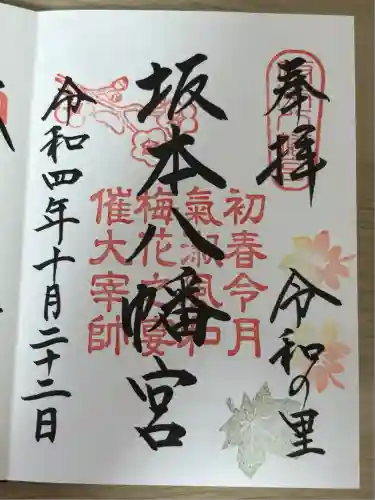 奉拝
令和の里
坂本八幡宮
初春令月
氣淑風和
梅花之宴
催大宰帥
令和四年十月二十二日